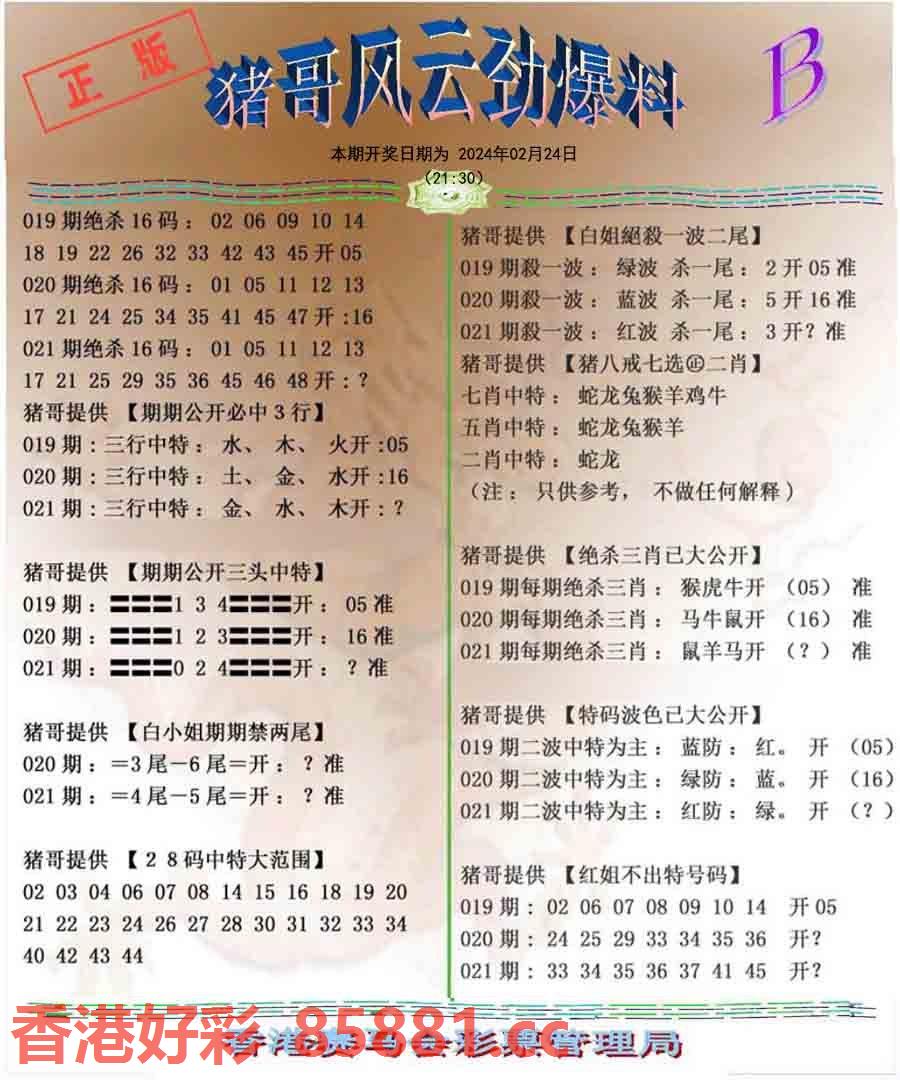 正版
猪哥风云劲爆料
B
本期开奖日期为 2024年02月24日
(21:30)
019期绝杀16码：02 06 09 10 14
18 19 22 26 32 33 42 43 45开05
020期绝杀16码：01 05 11 12 13
17 21 24 25 34 35 41 45 47开:16
021期绝杀16码：01 05 11 12 13
17 21 25 29 35 36 45 46 48开:？
猪哥提供【期期公开必中3行】
019期:三行中特：水、木、火开:05
020期:三行中特：土、金、水开:16
021期:三行中特：金、水、木开:？
猪哥提供【期期公开三头中特】
019期:〓〓〓1 3 4〓〓〓开：05准
020期:〓〓〓1 2 3〓〓〓开：16准
021期:〓〓〓0 2 4〓〓〓开：？准
猪哥提供【白小姐期期禁两尾】
020期:＝3尾－6尾＝开：？准
021期:＝4尾－5尾＝开：？准
猪哥提供【２８码中特大范围】
02 03 04 06 07 08 14 15 16 18 19 20
21 22 23 24 26 27 28 30 31 32 33 34
40 42 43 44
猪哥提供【白姐絕殺一波二尾】
019期殺一波：绿波 杀一尾：2开05准
020期殺一波：蓝波 杀一尾：5开16准
021期殺一波：红波 杀一尾：3开？准
猪哥提供【猪八戒七选㊣二肖】
七肖中特：蛇龙兔猴羊鸡牛
五肖中特：蛇龙兔猴羊
二肖中特：蛇龙
（注：只供参考，不做任何解释）
猪哥提供【绝杀三肖已大公开】
019期每期绝杀三肖：猴虎牛开（05）准
020期每期绝杀三肖：马牛鼠开（16）准
021期每期绝杀三肖：鼠羊马开（？）准
猪哥提供【特码波色已大公开】
019期二波中特为主：蓝防：红。开（05）
020期二波中特为主：绿防：蓝。开（16）
021期二波中特为主：红防：绿。开（？）
猪哥提供【红姐不出特号码】
019期：02 06 07 08 09 10 14 开05
020期：24 25 29 33 34 35 36 开?
021期：33 34 35 36 37 41 45 开?
香港好彩 85881.cc
香港赛马会彩票管理局